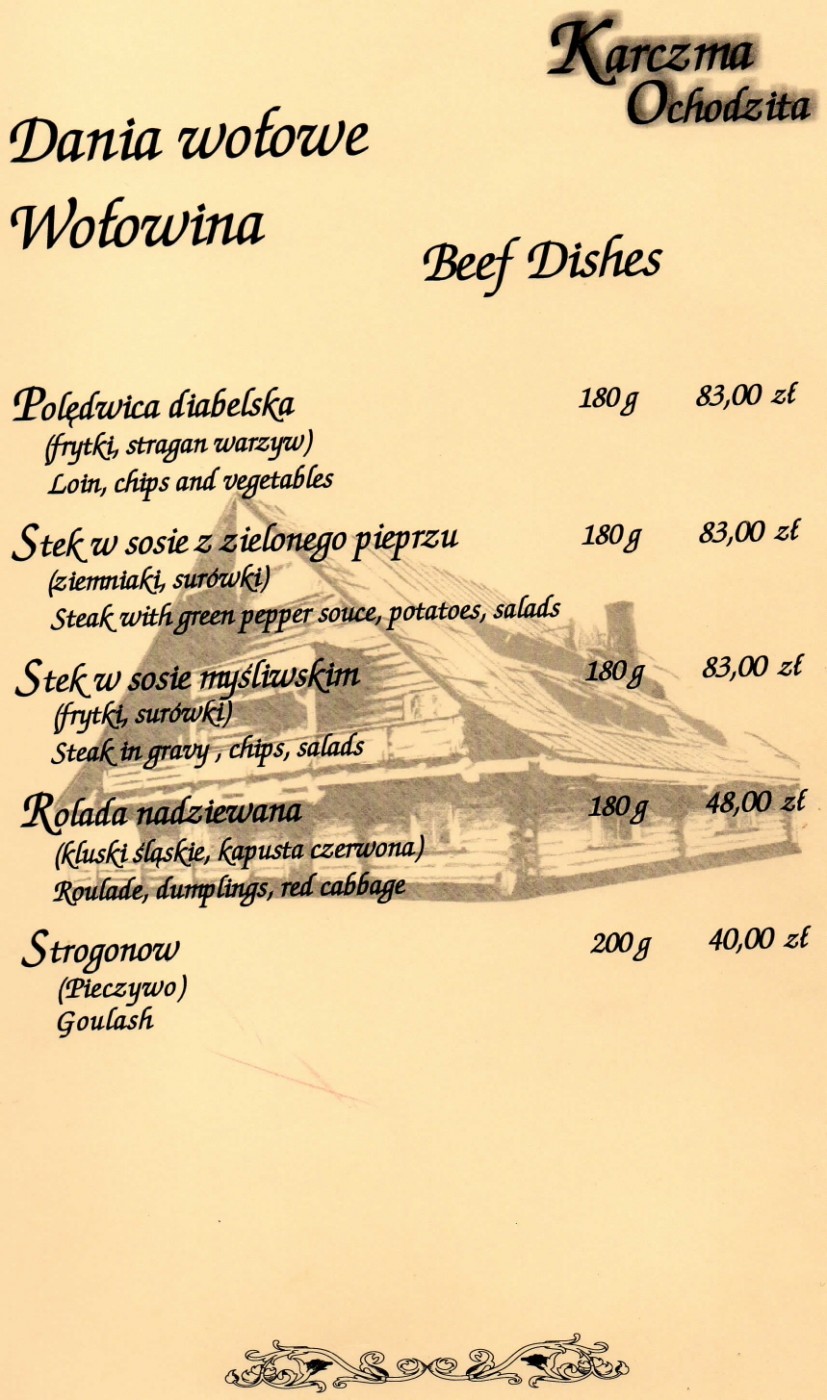 Karczma
Ochodzita
Dania wołowe
Wołowina
Beef Dishes
Polędwica diabelska 180g 83,00 zł
(frytki, stragan warzyw)
Loin, chips and vegetables
Stek w sosie z zielonego pieprzu 180g 83,00 zł
(ziemniaki, surówki)
Steak with green pepper souce, potatoes, salads
Stek w sosie myśliwskim 180g 83,00 zł
(frytki, surówki)
Steak in gravy , chips, salads
Rolada nadziewana 180g 48,00 zł
(kluski śląskie, kapusta czerwona)
Roulade, dumplings, red cabbage
Strogonow 200g 40,00 zł
(Pieczywo)
Goulash